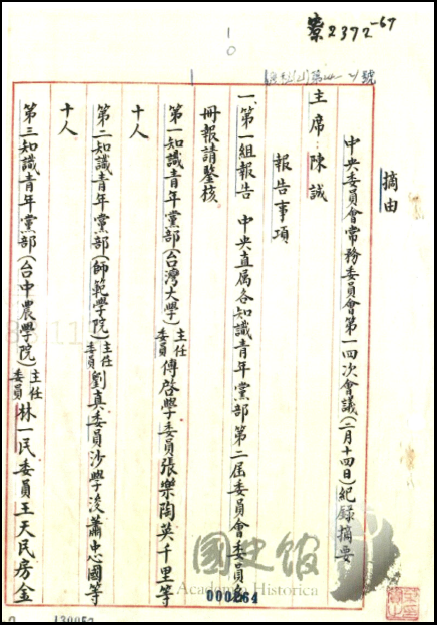 寮2372-67
摘由
中央委員會常務委員會第一四次會議(二月十四日)紀錄摘要
主席 陳誠
報告事項
一、第一組報告 中央直属各知識青年黨部第二屆委員會委員名
冊報請鑒核
第一知識青年黨部(台灣大學)主任委員傅啓學委員張樂陶英千里等
十人
第二知識青年黨部(師範學院)主任委員劉真委員沙學浚蕭忠國等
十人
第三知識青年黨部(台中農學院)主任委員林一民委員王天民房金
國史館
Academia Historica
000264